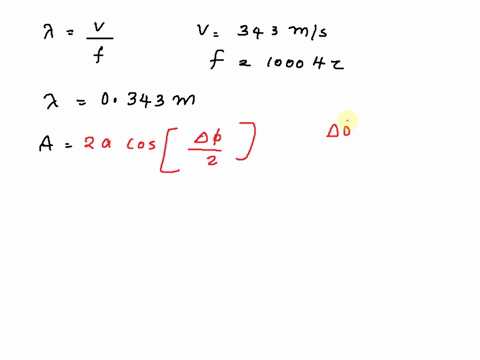 λ = v/f    v = 343 m/s
f = 1000 Hz
λ = 0.343 m
A = 2a cos[Δϕ/2]    Δ